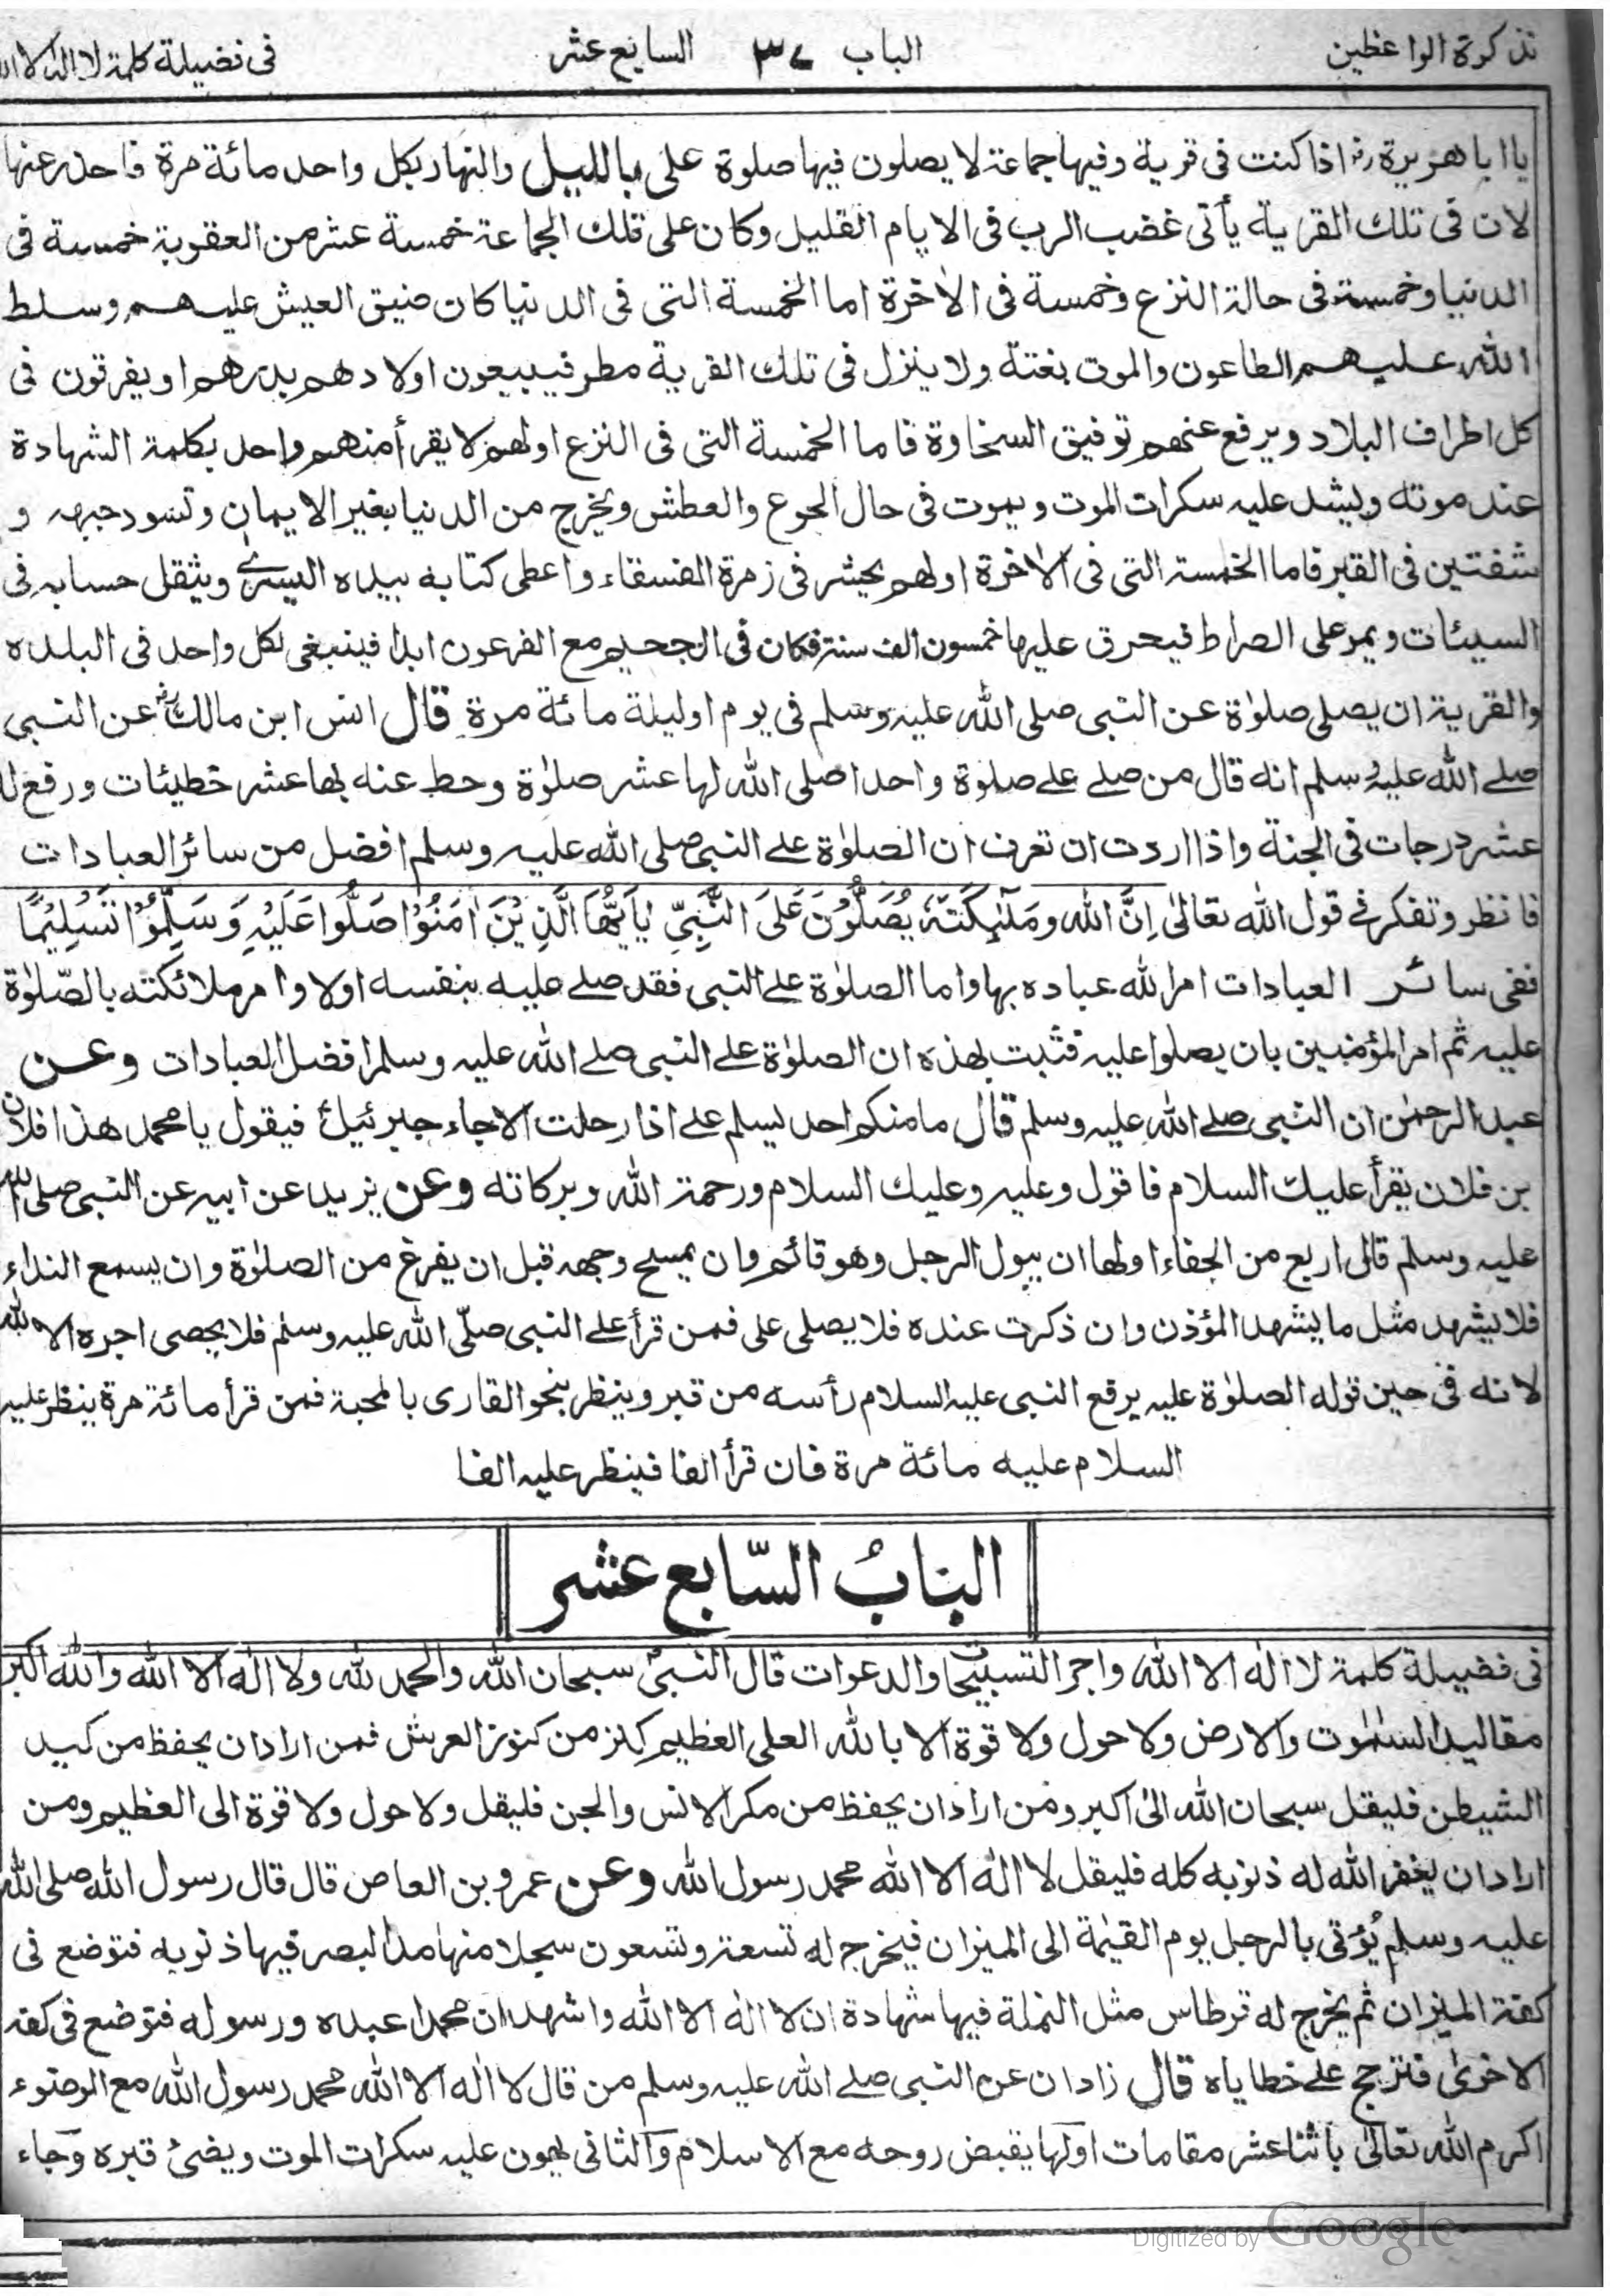 تذكرة الواعظين
الباب ٣٧ السابع عشر
فى فضيلة كلمة لا اله الا الله
يا ابا هريرة رض اذا كنت فى قرية وفيها جماعة لا يصلون فيها صلوة على بالليل والنهار بكل واحد مائة مرة فاحذر عنها
لان فى تلك القرية يأتى غضب الرب فى الايام القليل وكان على تلك الجماعة خمسة عشر من العقوبة خمسة فى
الدنيا وخمسة فى حالة النزع وخمسة فى الاخرة اما الخمسة التى فى الدنيا كان ضيق العيش عليهم وسلط
الله عليهم الطاعون والموت بغتة ولا ينزل فى تلك القرية مطر فيبيعون اولادهم بدرهم او يفرقون فى
كل اطراف البلاد ويرفع عنهم توفيق السخاوة فاما الخمسة التى فى النزع اولهم لا يقرأ منهم واحد بكلمة الشهادة
عند موته ويشد عليه سكرات الموت ويموت فى حال الجوع والعطش ويخرج من الدنيا بغير الايمان وتسود جبهه و
شفتين فى القبر فاما الخمسة التى فى الاخرة اولهم يحشر فى زمرة الفسقاء واعطى كتابه بيده اليسرے ويثقل حسابه فى
السيئات ويمر على الصراط فيحرق عليها خمسون الف سنة فكان فى الجحيم مع الفرعون ابدا فينبغى لكل واحد فى البلده
والقرية ان يصلى صلوٰة عن النبى صلى الله عليه وسلم فى يوم او ليلة مائة مرة قال انس ابن مالك رض عن النبى
صلے الله عليه وسلم انه قال من صلے علے صلوٰة واحدا صلى الله لها عشر صلوٰة وحط عنه بها عشر خطيئات ورفع لا
عشر درجات فى الجنة واذا اردت ان تعرف ان الصلوٰة علے النبى صلى الله عليه وسلم افضل من سائر العبادات
فانظر وتفكر فے قول الله تعالىٰ اِنَّ الله ومَلٰٓئِكَتَهٗ يُصَلُّوْنَ عَلَى النَّبِىِّ يٰاَيُّهَا الَّذِيْنَ اٰمَنُوْا صَلُّوا عَلَيْهِ وَسَلِّمُوْا تَسْلِيْمًا
ففى سائر العبادات امر الله عباده بها واما الصلوٰة علے النبى فقد صلے عليه بنفسه اولا وامر ملائكته بالصّلوٰة
عليه ثم امر المؤمنين بان يصلوا عليه فثبت بهذه ان الصلوٰة علے النبى صلے الله عليه وسلم افضل العبادات وعن
عبد الرحمٰن ان النبى صلے الله عليه وسلم قال ما منكم احد يسلم علے اذا رحلت الا جاء جبرئيل فيقول يا محمد هذا فلان
بن فلان يقرأ عليك السلام فاقول وعليه وعليك السلام ورحمة الله وبركاته وعن يزيد عن ابيه عن النبى صلى الله
عليه وسلم قال اربع من الجفاء اولها ان يبول الرجل وهو قائم وان يمسح وجهه قبل ان يفرغ من الصلوٰة وان يسمع النداء
فلا يشهد مثل ما يشهد المؤذن وان ذكرت عنده فلا يصلى على فمن قرأ علے النبى صلّى الله عليه وسلم فلا يحصى اجره الا الله
لانه فى حين قوله الصلوٰة عليه يرفع النبى عليه السلام رأسه من قبر وينظر بنحو القارى بالمحبة فمن قرأ مائة مرة ينظر عليه
السلام عليه مائة مرة فان قرأ الفا فينظر عليه الفا
البابُ السّابع عشر
فى فضيلة كلمة لا اله الا الله واجر التسبيحا والدعوات قال النبى سبحان الله والحمد لله ولا اله الا الله والله اكبر
مقاليد السمٰوت والارض ولا حول ولا قوة الا بالله العلى العظيم كنز من كنوز العرش فمن اراد ان يحفظ من كيد
الشيطن فليقل سبحان الله الىٰ اكبر ومن اراد ان يحفظ من مكر الانس والجن فليقل ولا حول ولا قوة الى العظيم ومن
اراد ان يغفر الله له ذنوبه كله فليقل لا اله الا الله محمد رسول الله وعن عمرو بن العاص قال قال رسول الله صلى الله
عليه وسلم يُؤتى بالرجل يوم القيٰمة الى الميزان فيخرج له تسعة وتسعون سجلا منها مد البصر فيها ذنوبه فتوضع فى
كفة الميزان ثم يخرج له قرطاس مثل النملة فيها شهادة ان لا اله الا الله واشهد ان محمدا عبده ورسوله فتوضع فى كفة
الاخرىٰ فترجح علے خطاياه قال زادان عن النبى صلے الله عليه وسلم من قال لا اله الا الله محمد رسول الله مع الوضوء
اكرم الله تعالىٰ باثنا عشر مقامات اولها يقبض روحه مع الاسلام والثانى يهون عليه سكرات الموت ويضئ قبره وجاء
Digitized by Google